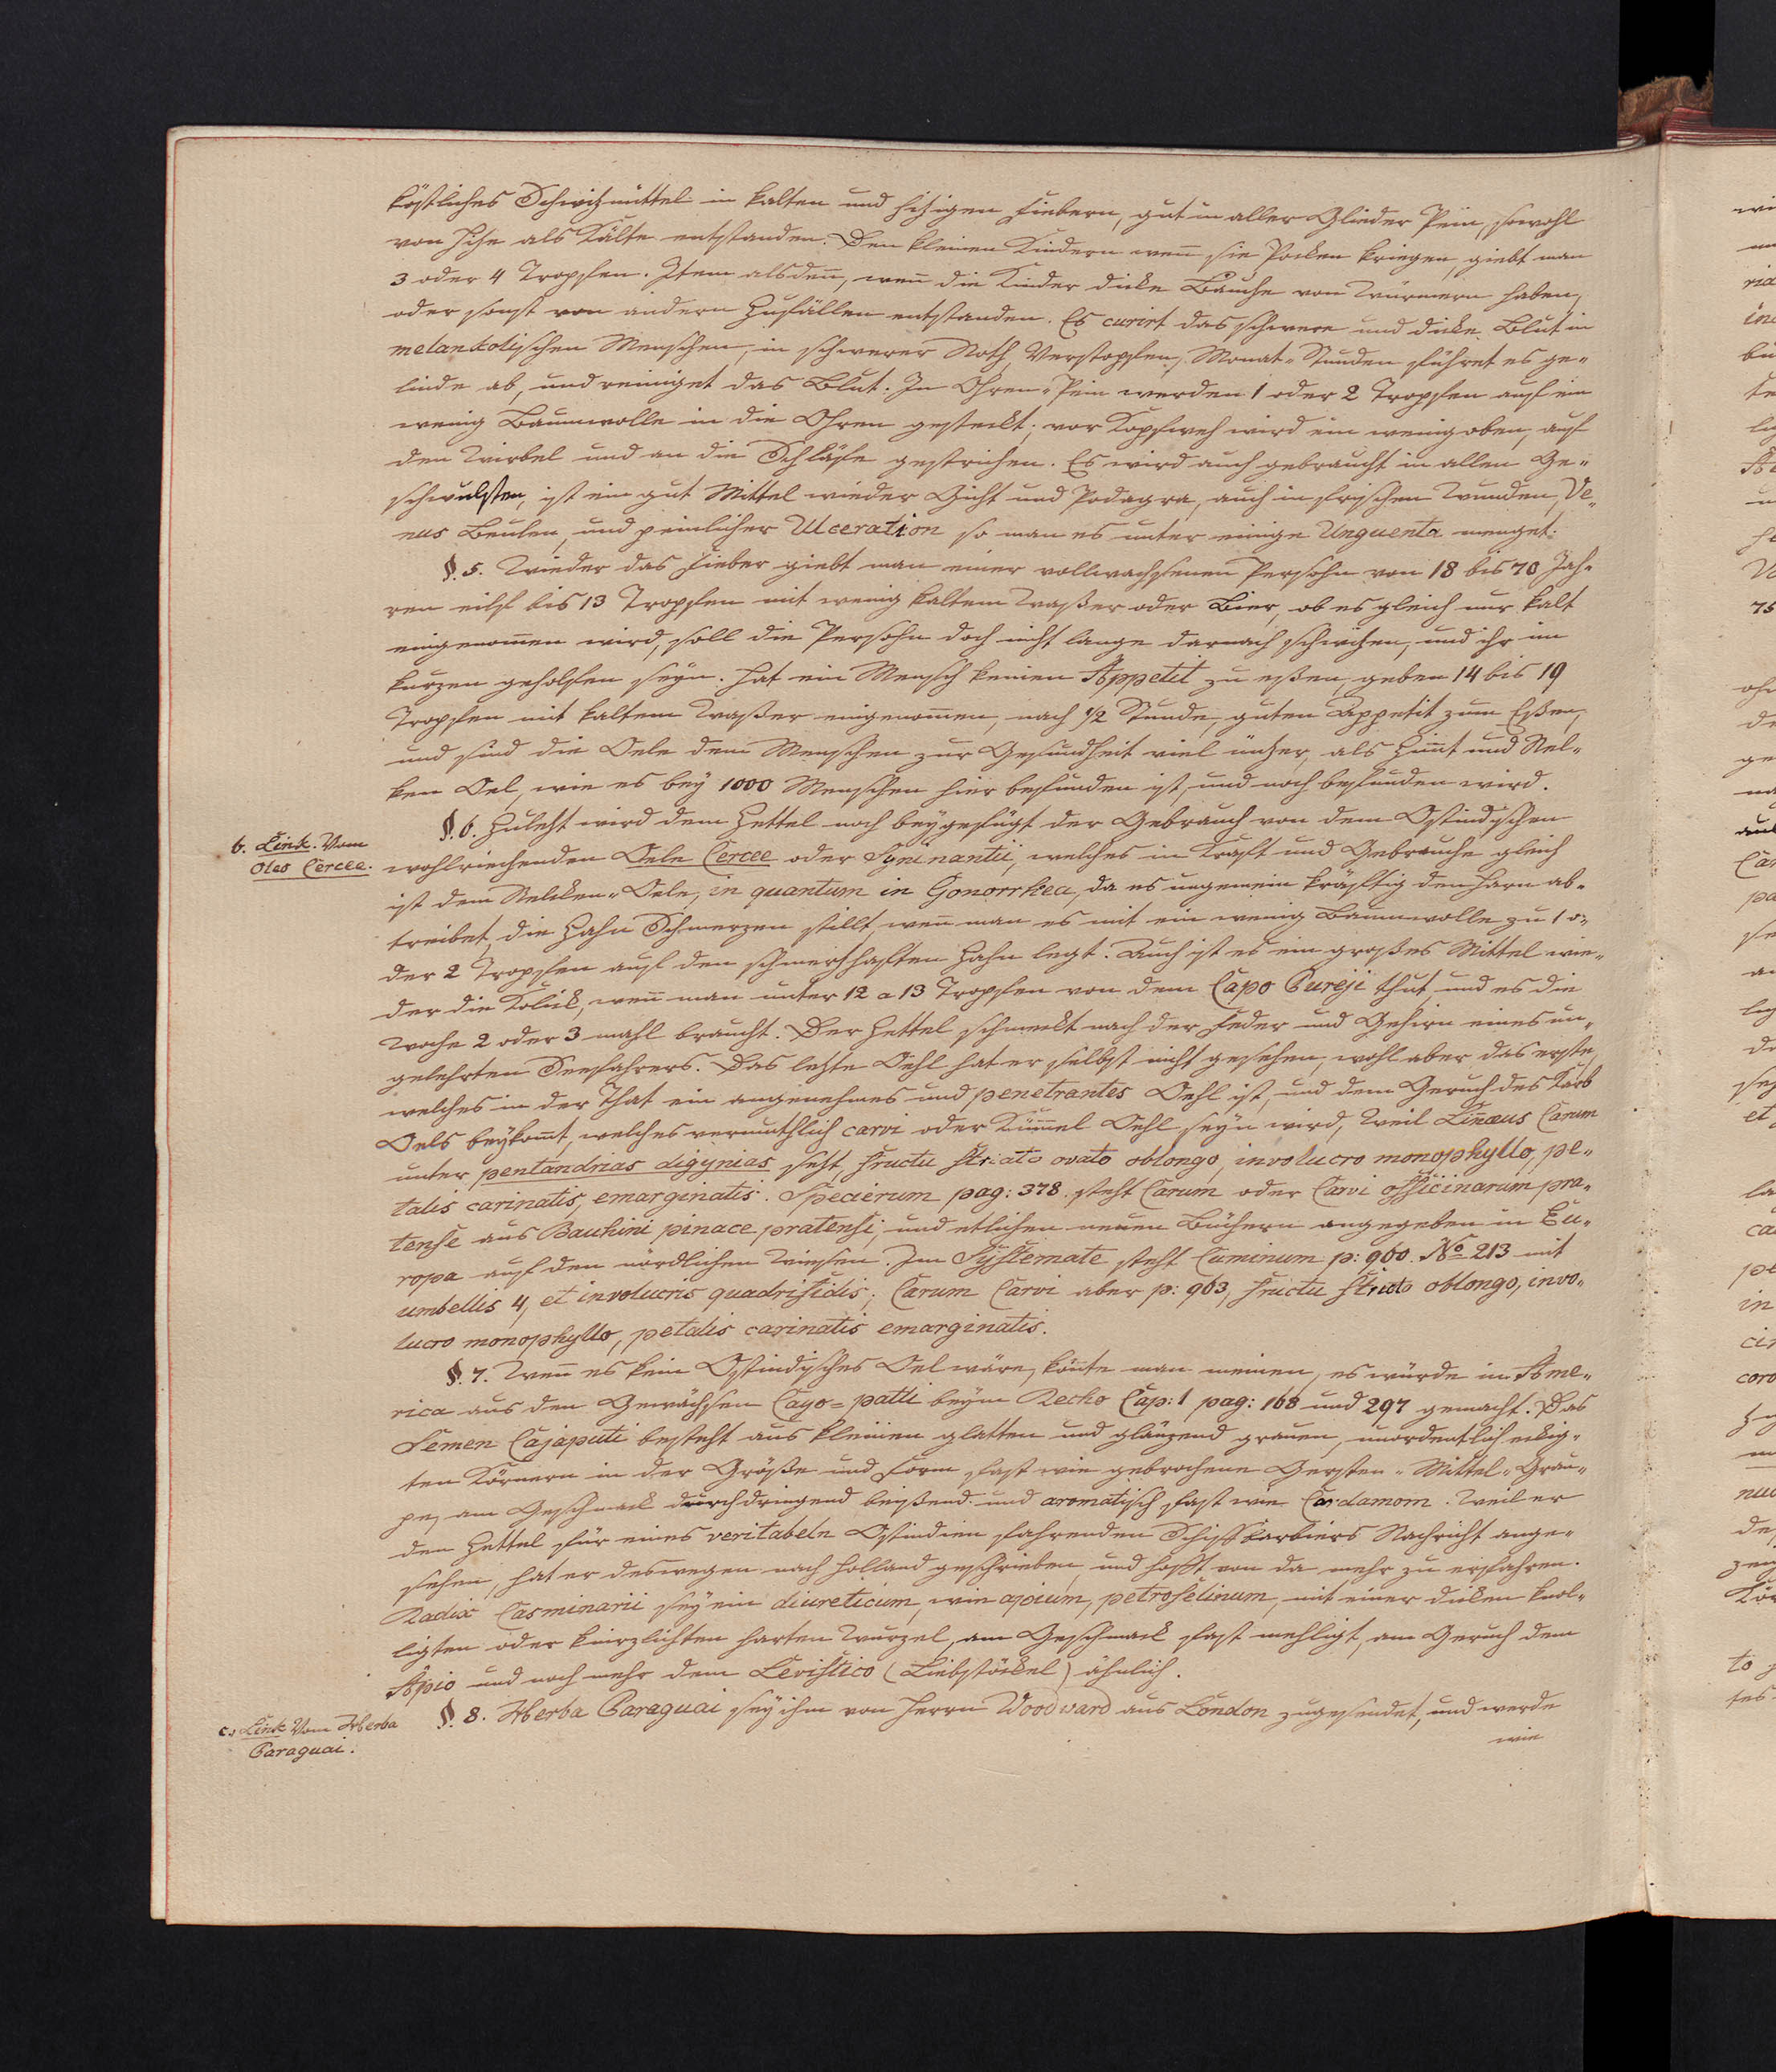 köstliches Schwizmittel in kalten und hizigen Fiebern, gut in aller Glieder Pein, sowohl
von Hize als Kälte entstanden. Den kleinen Kindern weñ sie Pocken kriegen, giebt man
3 oder 4 Tropfen. Item alsdeñ, weñ die Kinder dicke Bäuche von Würmern haben,
oder sonst von andern Zufällen entstanden. Es curirt das schwere und dicke Blut in
melankolischen Menschen, in schwerer Noth, Verstopfen, Monat-Stunden führet es ge-
linde ab, und reiniget das Blut. In Ohren-Pein werden 1 oder 2 Tropfen auf ein
wenig Baumwolle in die Ohren gesteckt; vor Kopfweh wird ein wenig oben, auf
den Wirbel und an die Schläfe gestrichen. Es wird auch gebraucht in allen Ge-
schwulsten, ist ein gut Mittel wieder Gicht und Podagra, auch in frischen Wunden, Ve-
nus Beulen, und peinlicher Ulceration so man es unter einige Unguenta menget.
§. 5. Wieder das Fieber giebt man einer vollwachsenen Persohn von 18 bis 70 Jah-
ren eilf bis 13 Tropfen mit wenig kaltem Waßer oder Bier, ob es gleich nur kalt
eingenom̃en wird, soll die Persohn doch nicht lange darnach schwizen, und ihr im
kurzen geholfen seyn. Hat ein Mensch keinen Appetit zu eßen, geben 14 bis 19
Tropfen mit kaltem Waßer eingenom̃en, nach 1/2 Stunde, guten Appetit zum Eßen,
und sind die Oele dem Menschen zur Gesundheit viel nüzer, als Zim̃t und Nel-
ken Oel, wie es bey 1000 Menschen hier befunden ist, und noch befunden wird.
§. 6. Zulezt wird dem Zettel noch beygefügt der Gebrauch von dem Ostindischen
b. Link. Vom
Oleo Cercee.
wohlriechenden Oele Cercee oder Syninantii, welches in Kraft und Gebrauche gleich
ist dem Nelcken-Oele, in quantum in Gonorrhea, da es ungemein kräftig den Harn ab-
treibet, die Zahn Schmerzen stillt, weñ man es mit ein wenig Baumwolle zu 1 o-
der 2 Tropfen auf den schmerzhaften Zahn legt. Auch ist es ein großes Mittel wie-
der die Kolick, weñ man unter 12 a 13 Tropfen von dem Capo Pureji thut, und es die
Woche 2 oder 3 mahl braucht. Der Zettel schmeckt nach der Feder und Gehirn eines un-
gelehrten Seefahrers. Das lezte Oehl hat er selbst nicht gesehen, wohl aber das erste,
welches in der That ein angenehmes und penetrantes Oehl ist, und dem Geruch des Karb
Oels beykom̃t, welches vermuthlich carvi oder Küm̃el Oehl seyn wird, weil Liñæus Carum
unter pentandrias digynias sezt, fructu striato ovato oblongo, involucro monophyllo, pe-
talis carinatis, emarginatis. Specierum pag: 378. steht Carum oder Carvi officinarum pra-
tense aus Bauhini pinace pratensi, und etlichen neuen Büchern angegeben in Eu-
ropa auf den nördlichen Wiesen. Im Systemate steht Cuminum p: 960. No 213 mit
umbellis 4, et involucris quadrifidis; Carum Carvi aber p: 963, fructu stricto oblongo, invo-
lucro monophyllo, petalis carinatis emarginatis.
§. 7. Weñ es kein Ostindisches Oel wäre, köñte man meinen, es würde in Ame-
rica aus den Gewächsen Cayo-patli beym Recho Cap: 1 pag: 168 und 297 gemacht. Das
Semen Cajaputi besteht aus kleinen glatten und glänzend grauen, unordentlich eckig-
ten Körnern in der Größe und Form fast wie gebrochene Gersten-Mittel-Grau-
pe, am Geschmack durchdringend beißend und aromatisch fast wie Cardamom. Weil er
den Zettel für eines veritabeln Ostindien fahrenden Schiffbarbiers Nachricht ange-
sehen, hat er deswegen nach Holland geschrieben, und hofft von da mehr zu erfahren.
Radix Casminarii sey ein diureticum, wie apium, petroselinum, mit einer dicken knol-
ligten oder knirzlichten harten Wurzel, am Geschmack fast mehligt, am Geruch dem
Apio und noch mehr dem Levistico (Liebstöckel) ähnlich.
c. Link Vom Herba
Paraguai.
§. 8. Herba Paraguai sey ihm von Herrn Woodward aus London zugesendet, und werde
wie